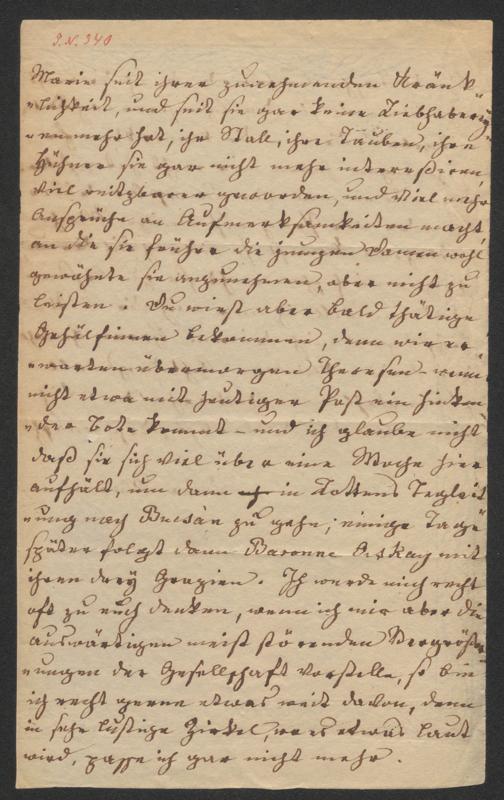 J.N. 340
Marie seit ihrer zunehmenden Kränk-
-lichkeit, und seit sie gar keine Liebhaberey-
-en mehr hat, ihr Stall, ihre Tauben, ihre
Hühner sie gar nicht mehr interessiren,
viel reitzbarer geworden, und viel mehr
Ansprüche an Aufmerksamkeiten macht,
an die sie früher die jungen Damen wohl
gewöhnte sie anzunehmen, aber nicht zu
leisten. Du wirst aber bald thätige
Gehülfinnen bekommen, denn wir er-
-warten übermorgen Theresen – wenn
nicht etwa mit heutiger Post ein hinken-
-der Bote kommt – und ich glaube nicht
daß sie sich viel über eine Woche hier
aufhält, um dann in Lottens Begleit-
-ung nach Bucsàn zu gehn; einige Tage
später folgt dann Baronne Orskay mit
ihren drey Grazien. Ich werde mich recht
oft zu euch denken, wenn ich mir aber die
auswärtigen meist störenden Vergrößer-
-ungen der Gesellschaft vorstelle, so bin
ich recht gerne etwas weit davon, denn
in sehr lustige Zirkel, wo es etwas laut
wird, passe ich gar nicht mehr.